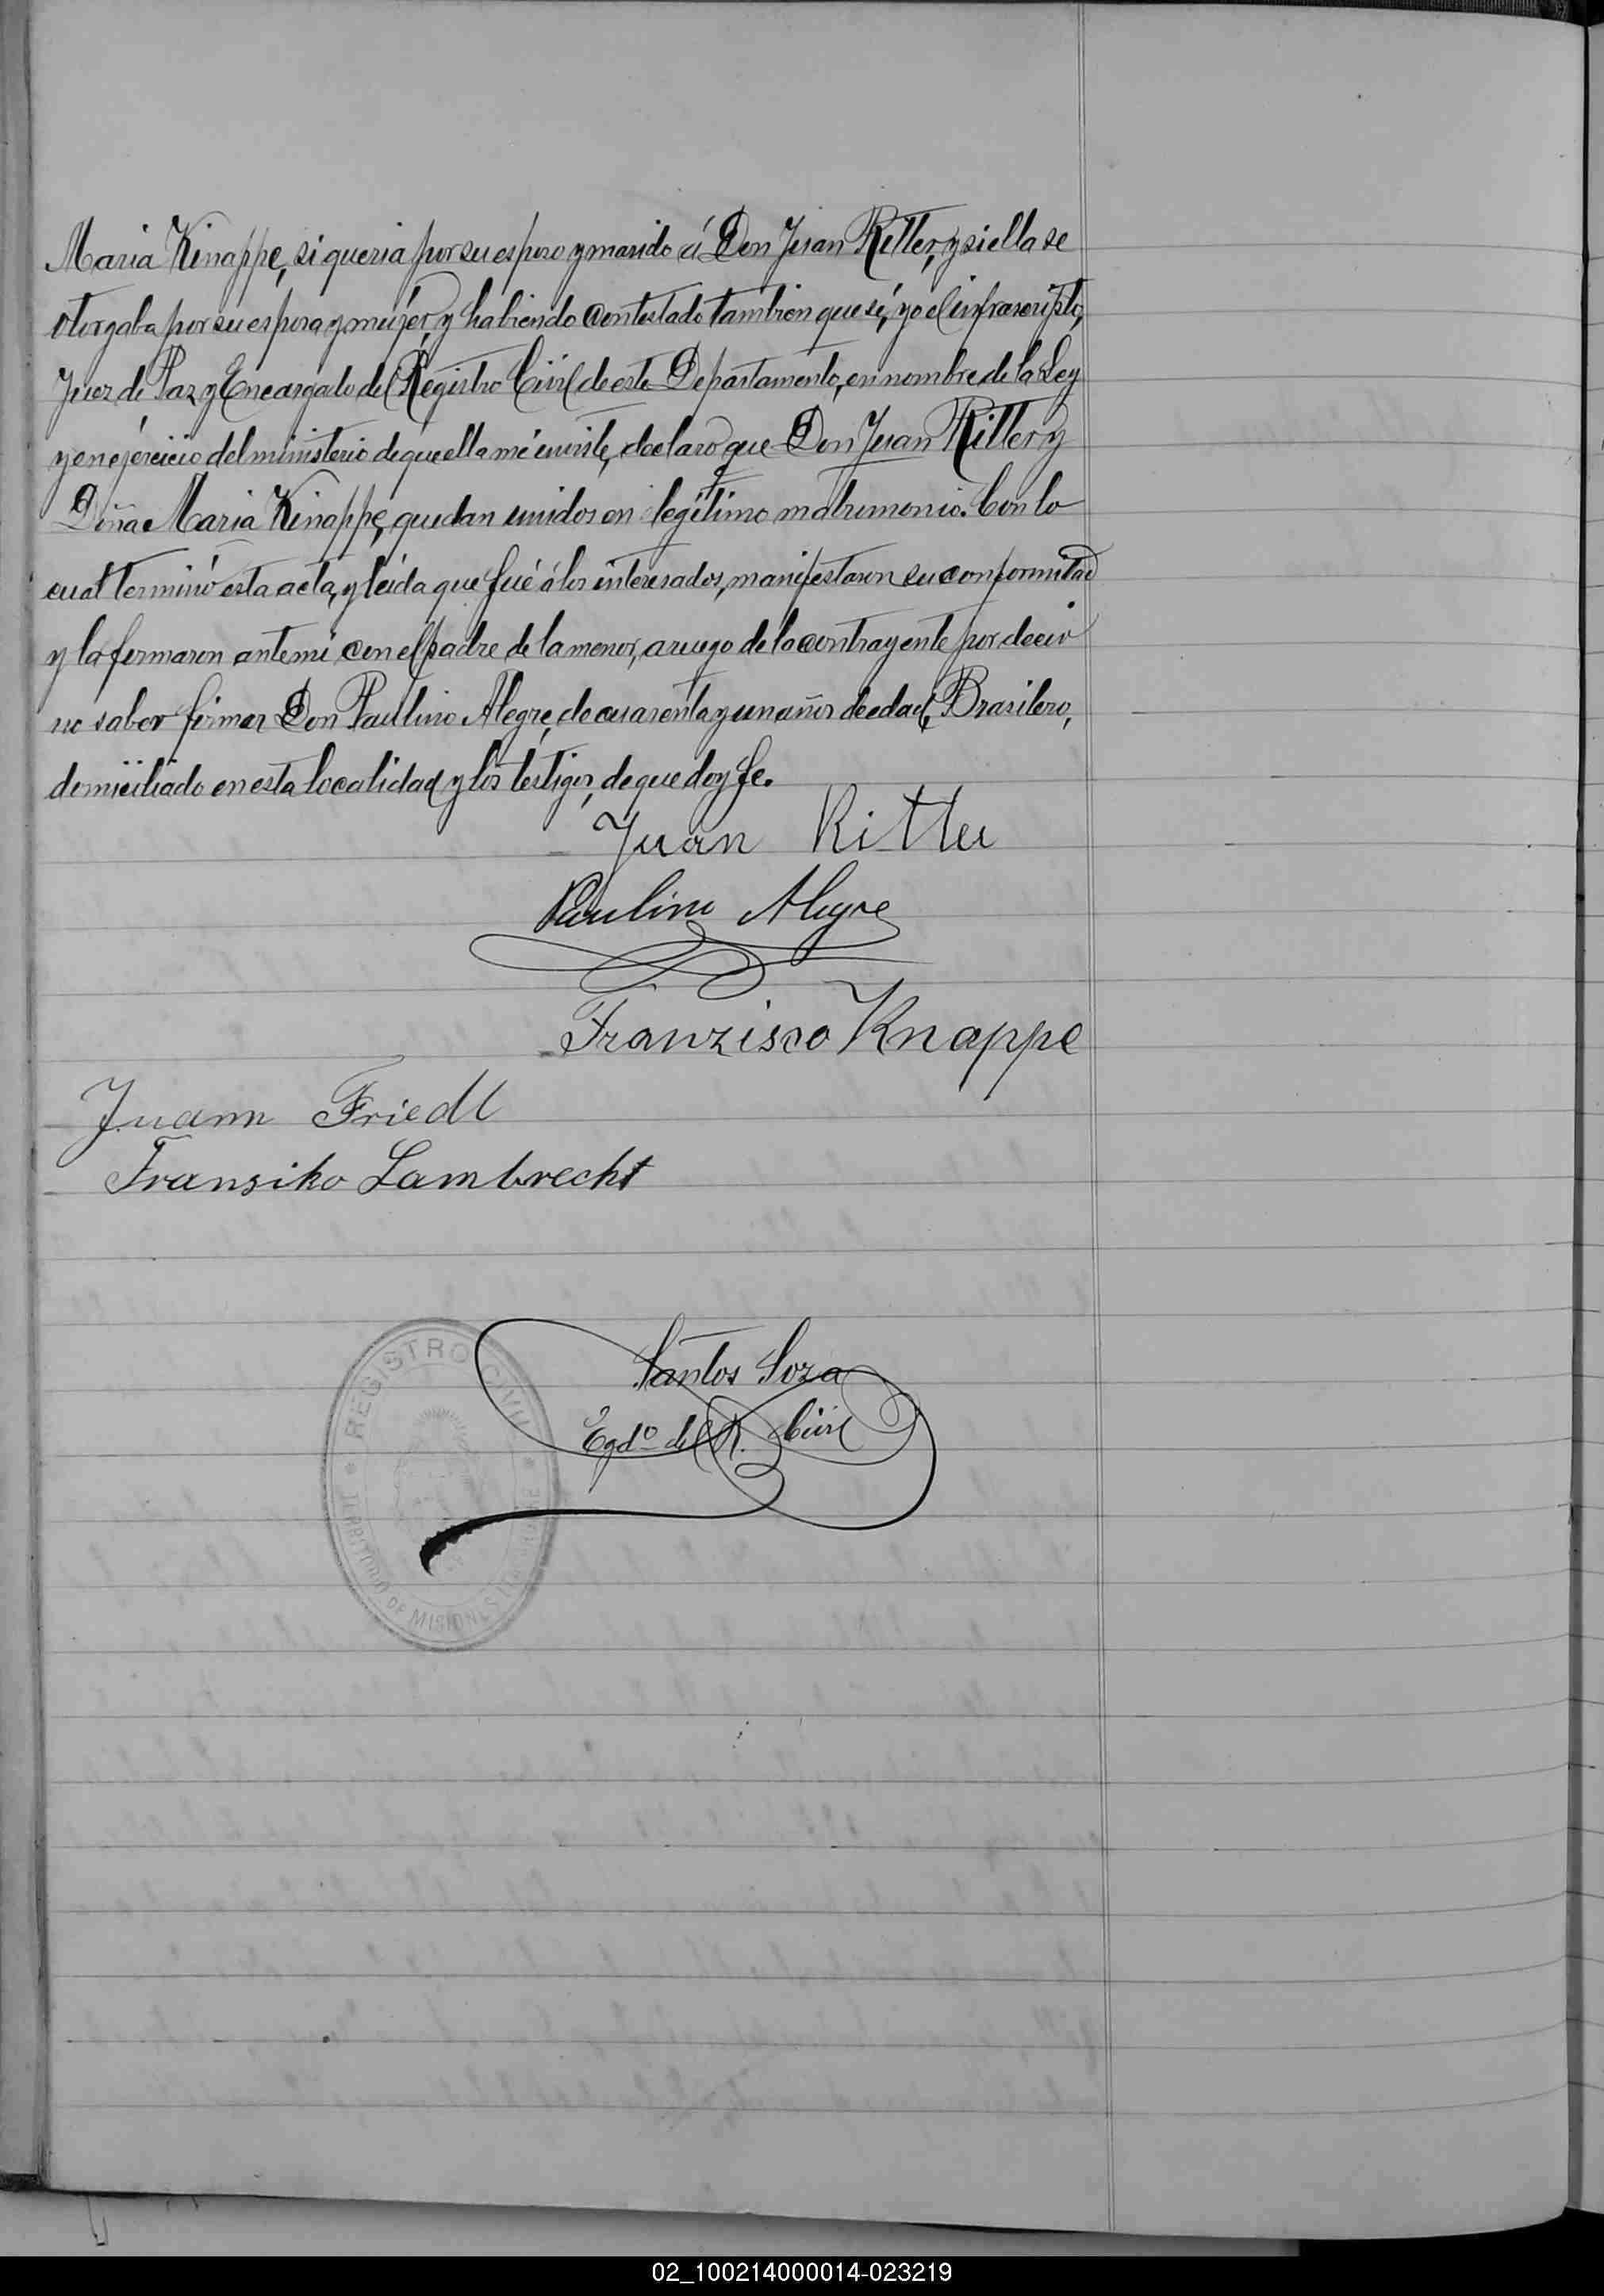 Maria Kinappe, si queria por su esposo y marido á Don Juan Ritter, y si ella se
otorgaba por su esposa y mujer, y habiendo contestado tambien que sí, yo el infrascripto,
Juez de Paz y Encargado del Registro Civil de este Departamento, en nombre de la Ley
y en ejercicio del ministerio de que ella me inviste, declaro que Don Juan Ritter y
Doña Maria Kinappe, quedan unidos en legítimo matrimonio. Con lo
cual terminó esta acta, y leida que fué á los interesados, manifestaron su conformidad
y la firmaron ante mi con el padre de la menor, a ruego de la contrayente por decir
no saber firmar Don Paulino Alegre, de cuarenta y un años de edad, Brasilero,
domiciliado en esta localidad y los testigos, de que doy fe.
Juan Ritter
Paulino Alegre
Franzisco Knappe
Juann Friedl
Fransiko Lambrecht
Santos Soza
Egdo del R. Civil
REGISTRO CIVIL
TERRITORIO DE MISIONES
02_100214000014-023219